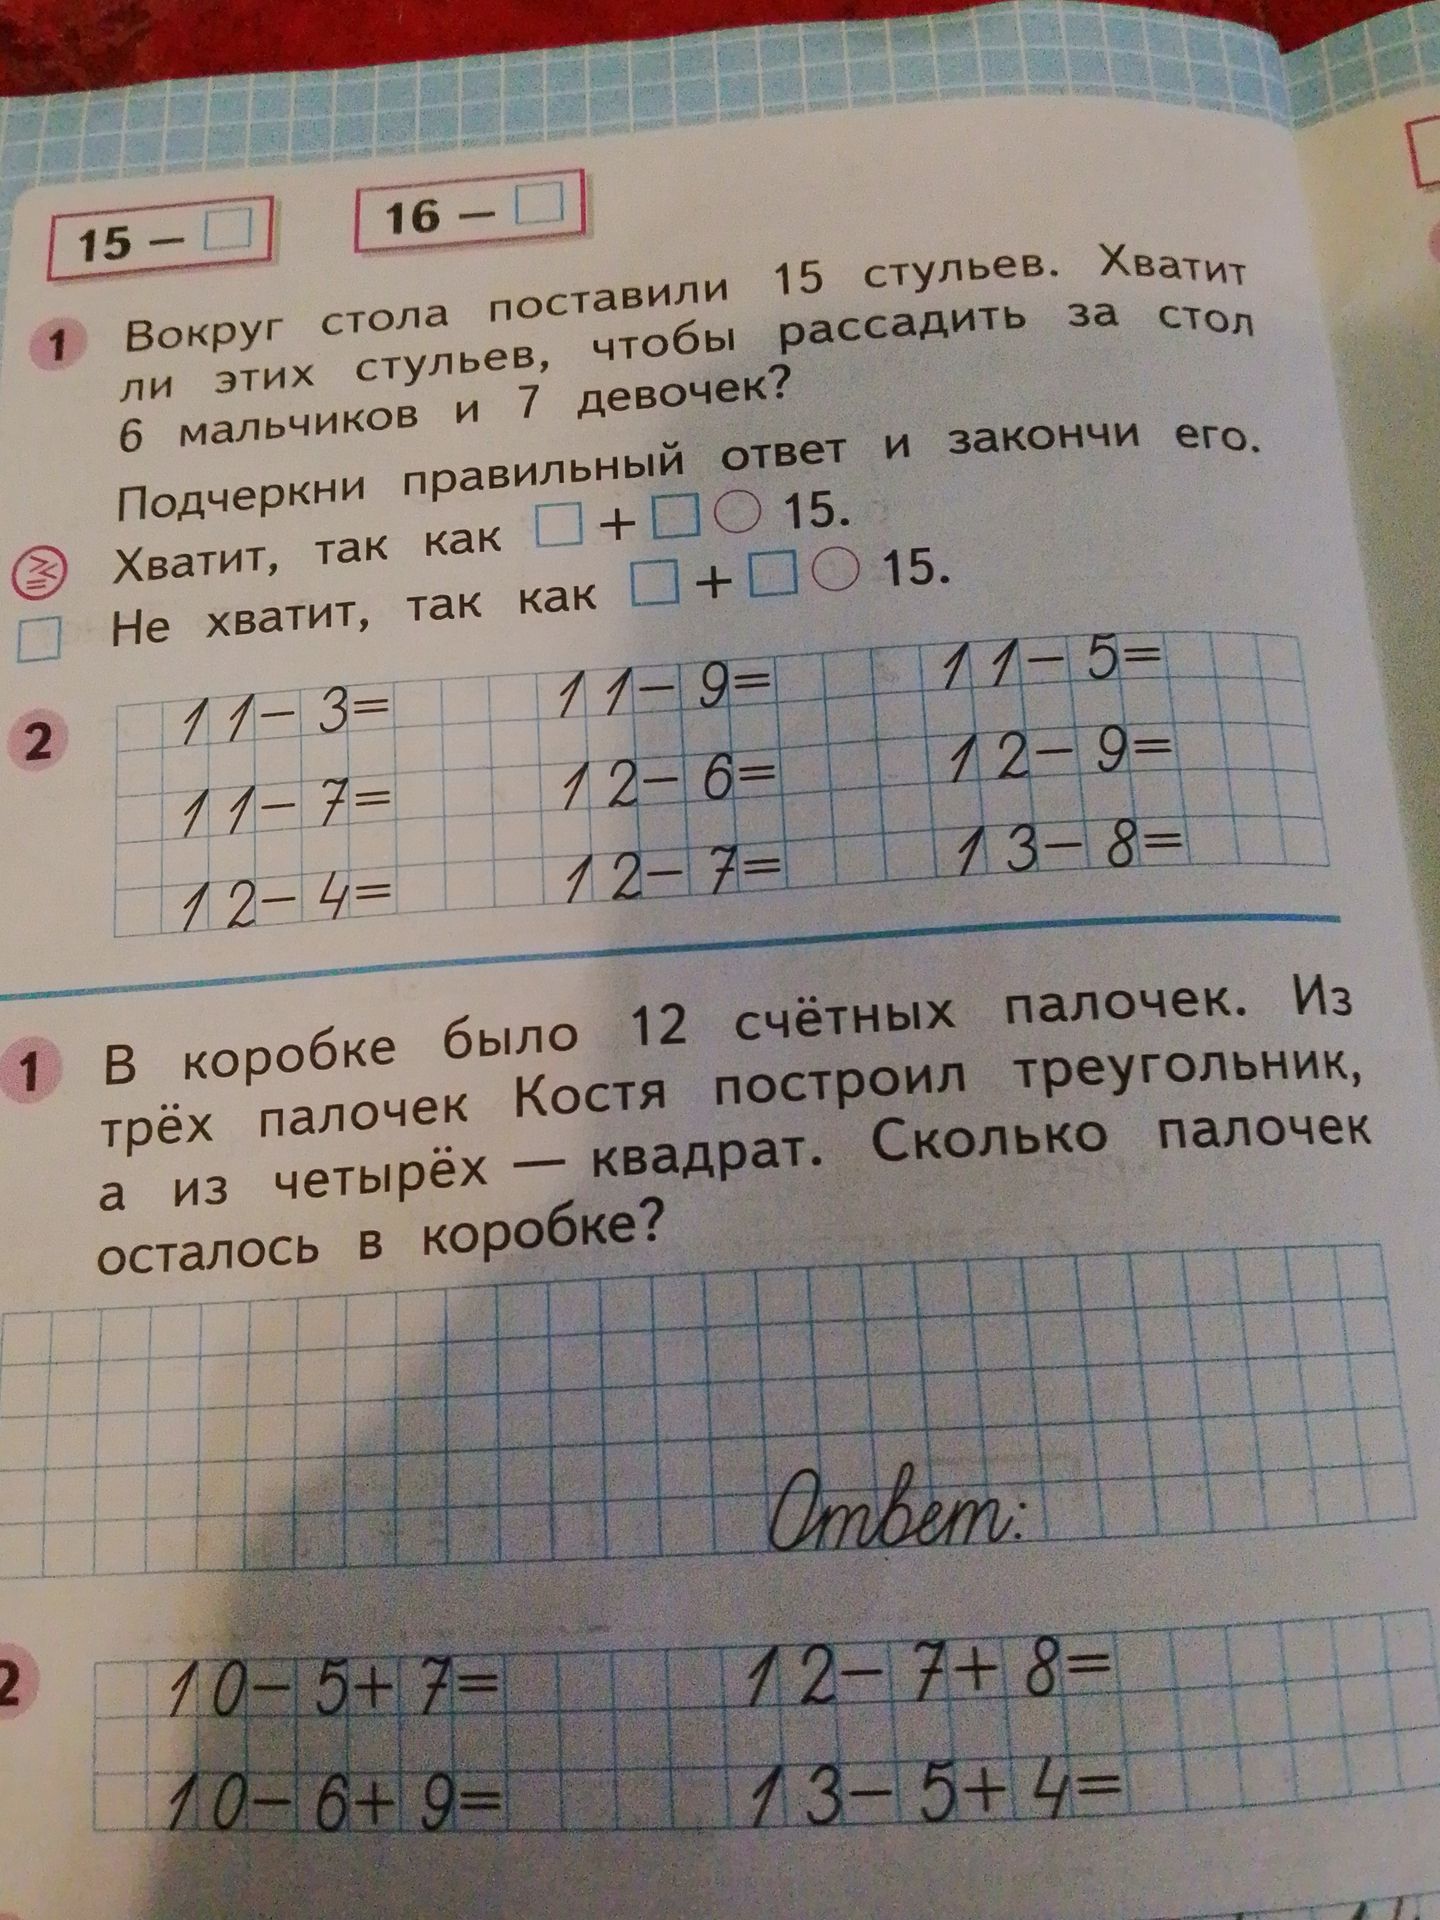 15 – □
16 – □
1 Вокруг стола поставили 15 стульев. Хватит
ли этих стульев, чтобы рассадить за стол
6 мальчиков и 7 девочек?
Подчеркни правильный ответ и закончи его.
Хватит, так как □ + □ ○ 15.
Не хватит, так как □ + □ ○ 15.
2 11–3= 11–9= 11–5=
11–7= 12–6= 12–9=
12–4= 12–7= 13–8=
1 В коробке было 12 счётных палочек. Из
трёх палочек Костя построил треугольник,
а из четырёх — квадрат. Сколько палочек
осталось в коробке?
Ответ:
2 10–5+7= 12–7+8=
10–6+9= 13–5+4=